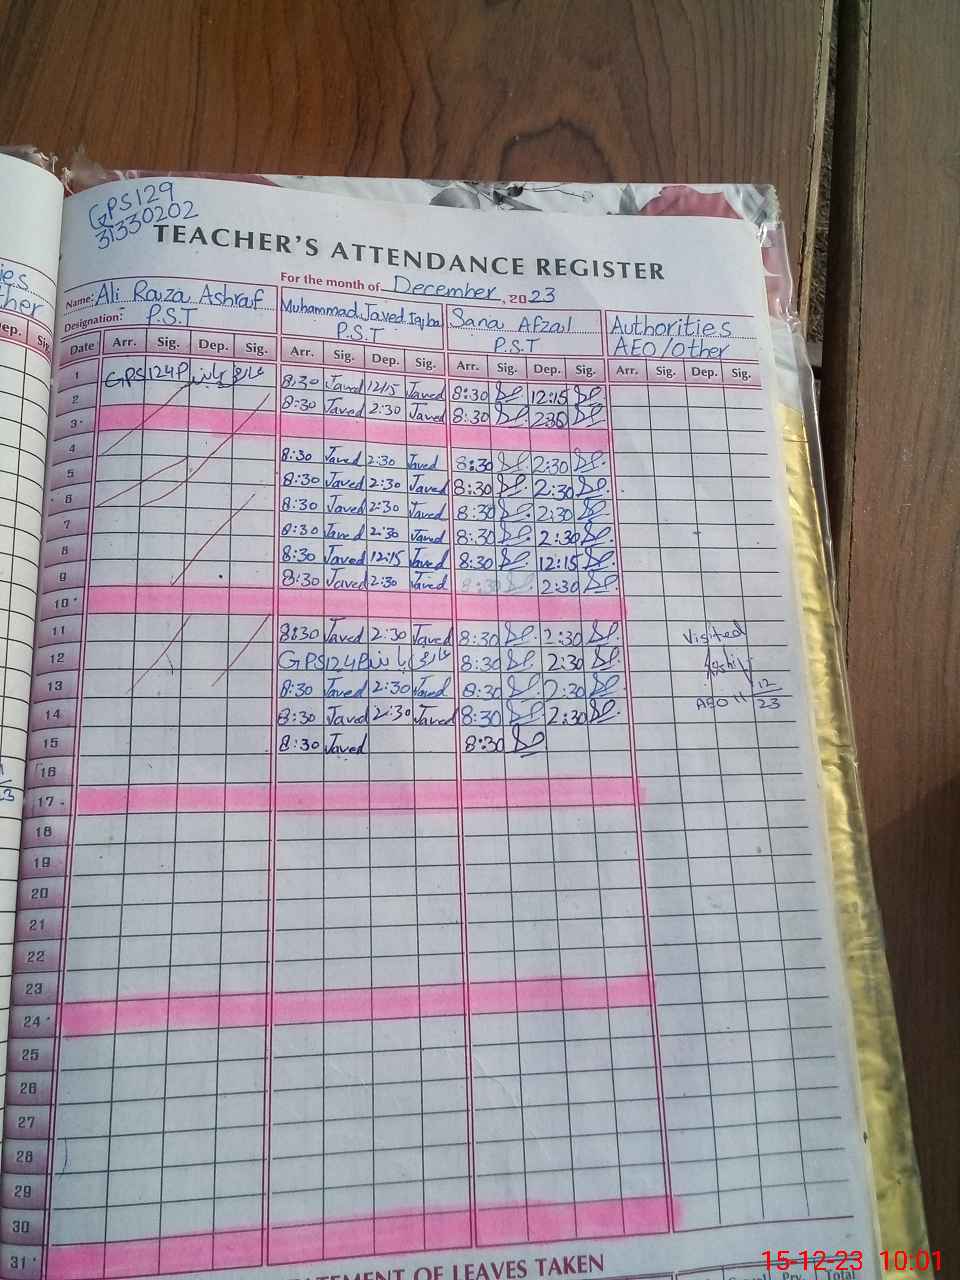 GPS 129
31330202
TEACHER'S ATTENDANCE REGISTER
For the month of December, 2023
Name: Ali Raza Ashraf Muhammad Javed Iqbal Sana Afzal Authorities
Designation: P.S.T P.S.T P.S.T AEO/Other
Date Arr. Sig. Dep. Sig. Arr. Sig. Dep. Sig. Arr. Sig. Dep. Sig. Arr. Sig. Dep. Sig.
1 GPS 124P عارضی 8:30 Javed 12:15 Javed 8:30 12:15
2 8:30 Javed 2:30 Javed 8:30 2:30
3
4 8:30 Javed 2:30 Javed 8:30 2:30
5 8:30 Javed 2:30 Javed 8:30 2:30
6 8:30 Javed 2:30 Javed 8:30 2:30
7 8:30 Javed 2:30 Javed 8:30 2:30
8 8:30 Javed 12:15 Javed 8:30 12:15
9 8:30 Javed 2:30 Javed 8:30 2:30
10
11 8:30 Javed 2:30 Javed 8:30 2:30 Visited
12 GPS 124P عارضی 8:30 2:30
13 8:30 Javed 2:30 Javed 8:30 2:30 AEO 11 12
14 8:30 Javed 2:30 Javed 8:30 2:30 23
15 8:30 Javed 8:30
16
17
18
19
20
21
22
23
24
25
26
27
28
29
30
31
OF LEAVES TAKEN
Total
15-12-23 10:01